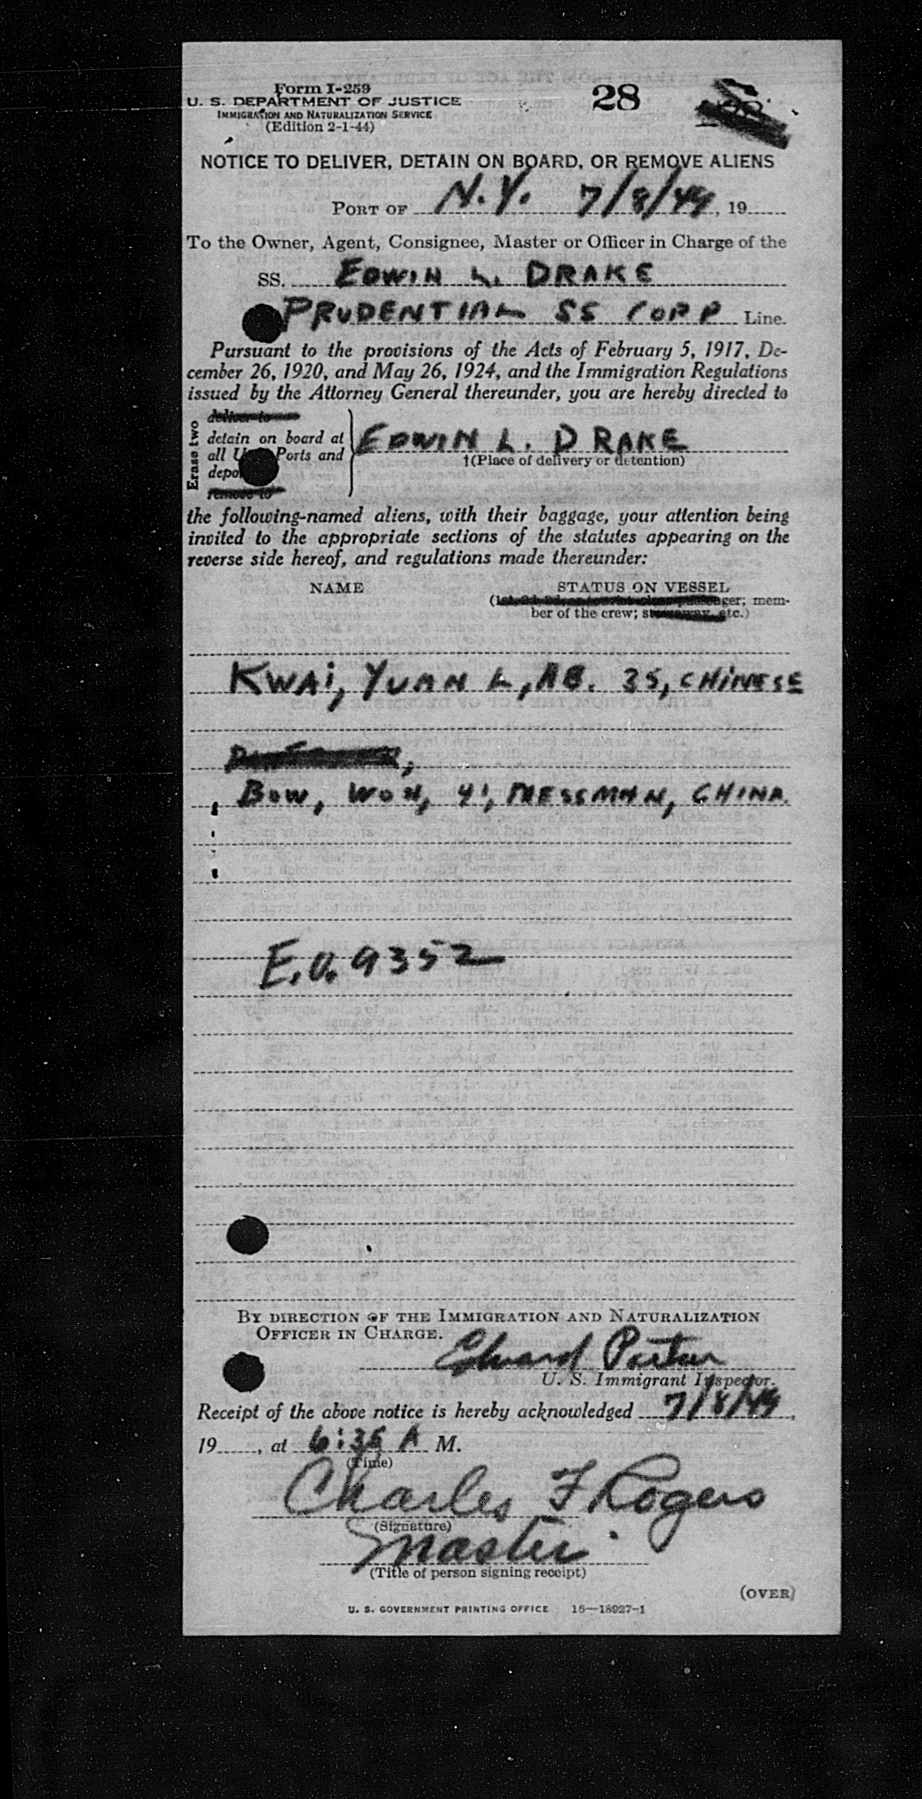 Form I-259
28
U. S. DEPARTMENT OF JUSTICE
IMMIGRATION AND NATURALIZATION SERVICE
(Edition 2-1-44)
NOTICE TO DELIVER, DETAIN ON BOARD, OR REMOVE ALIENS
PORT OF N.Y. 7/8/49, 19
To the Owner, Agent, Consignee, Master or Officer in Charge of the
SS. EDWIN L. DRAKE
PRUDENTIAL SS CORP Line.
Pursuant to the provisions of the Acts of February 5, 1917, De-
cember 26, 1920, and May 26, 1924, and the Immigration Regulations
issued by the Attorney General thereunder, you are hereby directed to
Erase two
deliver to
detain on board at
all Ports and
remove to
EDWIN L. DRAKE
†(Place of delivery or detention)
the following-named aliens, with their baggage, your attention being
invited to the appropriate sections of the statutes appearing on the
reverse side hereof, and regulations made thereunder:
NAME
STATUS ON VESSEL
mem-
ber of the crew; etc.)
KWAI, YUAN L, AB. 35, CHINESE
BOW, WOH, 41, MESSMAN, CHINA.
E.O. 9352
BY DIRECTION OF THE IMMIGRATION AND NATURALIZATION
OFFICER IN CHARGE.
Edward
U. S. Immigrant Inspector.
Receipt of the above notice is hereby acknowledged 7/8/49,
19, at 6:35 A M.
(Time)
Charles F Rogers
(Signature)
Master
(Title of person signing receipt)
(OVER)
U. S. GOVERNMENT PRINTING OFFICE 16—18927-1